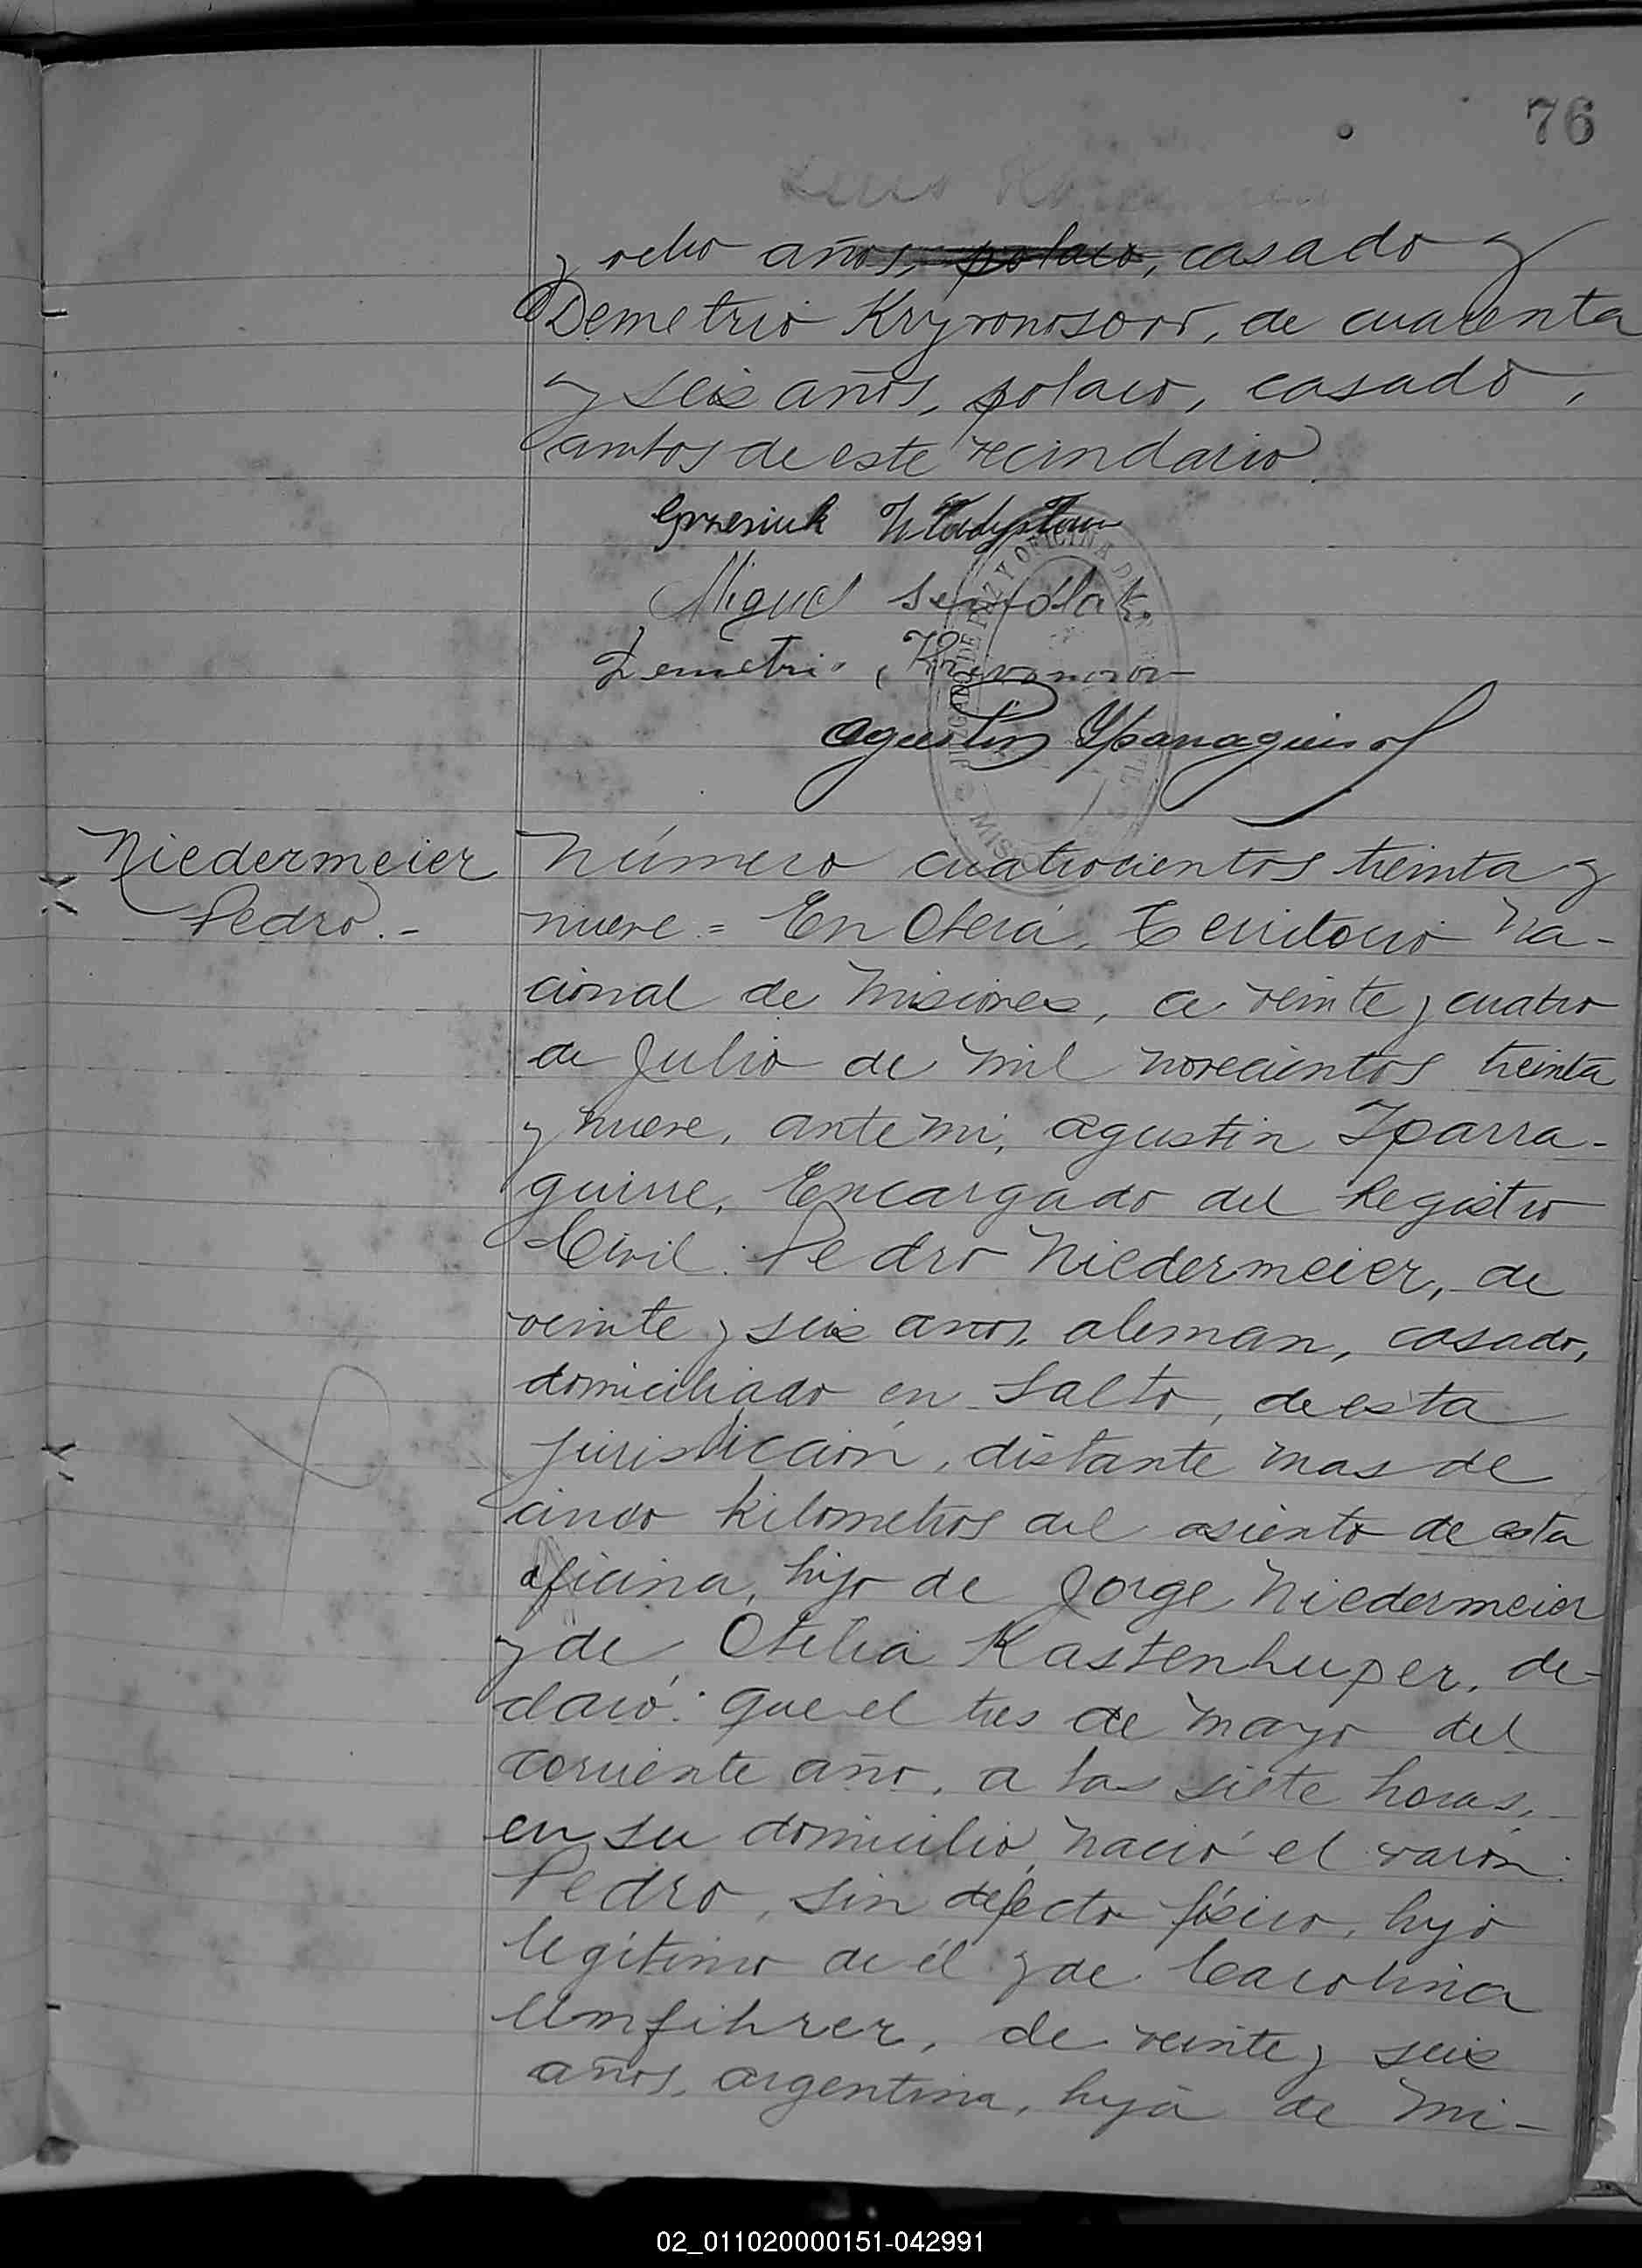 76
y ocho años, polaco, casado y
Demetrio Kryvonosow, de cuarenta
y seis años, polaco, casado,
ambos de este vecindario
Grzesiuk Wladyslaw
Miguel
Demetrio
Agustin Yparraguirre
JUZGADO DE PAZ Y OFICINA DE
Niedermeier
Pedro.-
Número cuatrocientos treinta y
nueve = En Oberá, Territorio Na-
cional de Misiones, a veinte y cuatro
de Julio de mil novecientos treinta
y nueve, ante mi, Agustin Iparra-
guirre, Encargado del Registro
Civil: Pedro Niedermeier, de
veinte y seis anos, aleman, casado,
domiciliado en Salto, de esta
jurisdicción, distante mas de
cinco kilometros del asiento de esta
oficina, hijo de Jorge Niedermeier
y de Otilia Kastenhuper, de-
claró: que el tres de mayo del
corriente año, a las siete horas,
en su domicilio, nació el varón:
Pedro, sin defecto físico, hijo
legítimo de él y de Carolina
Umfihrer, de veinte y seis
años, argentina, hija de Mi-
02_011020000151-042991